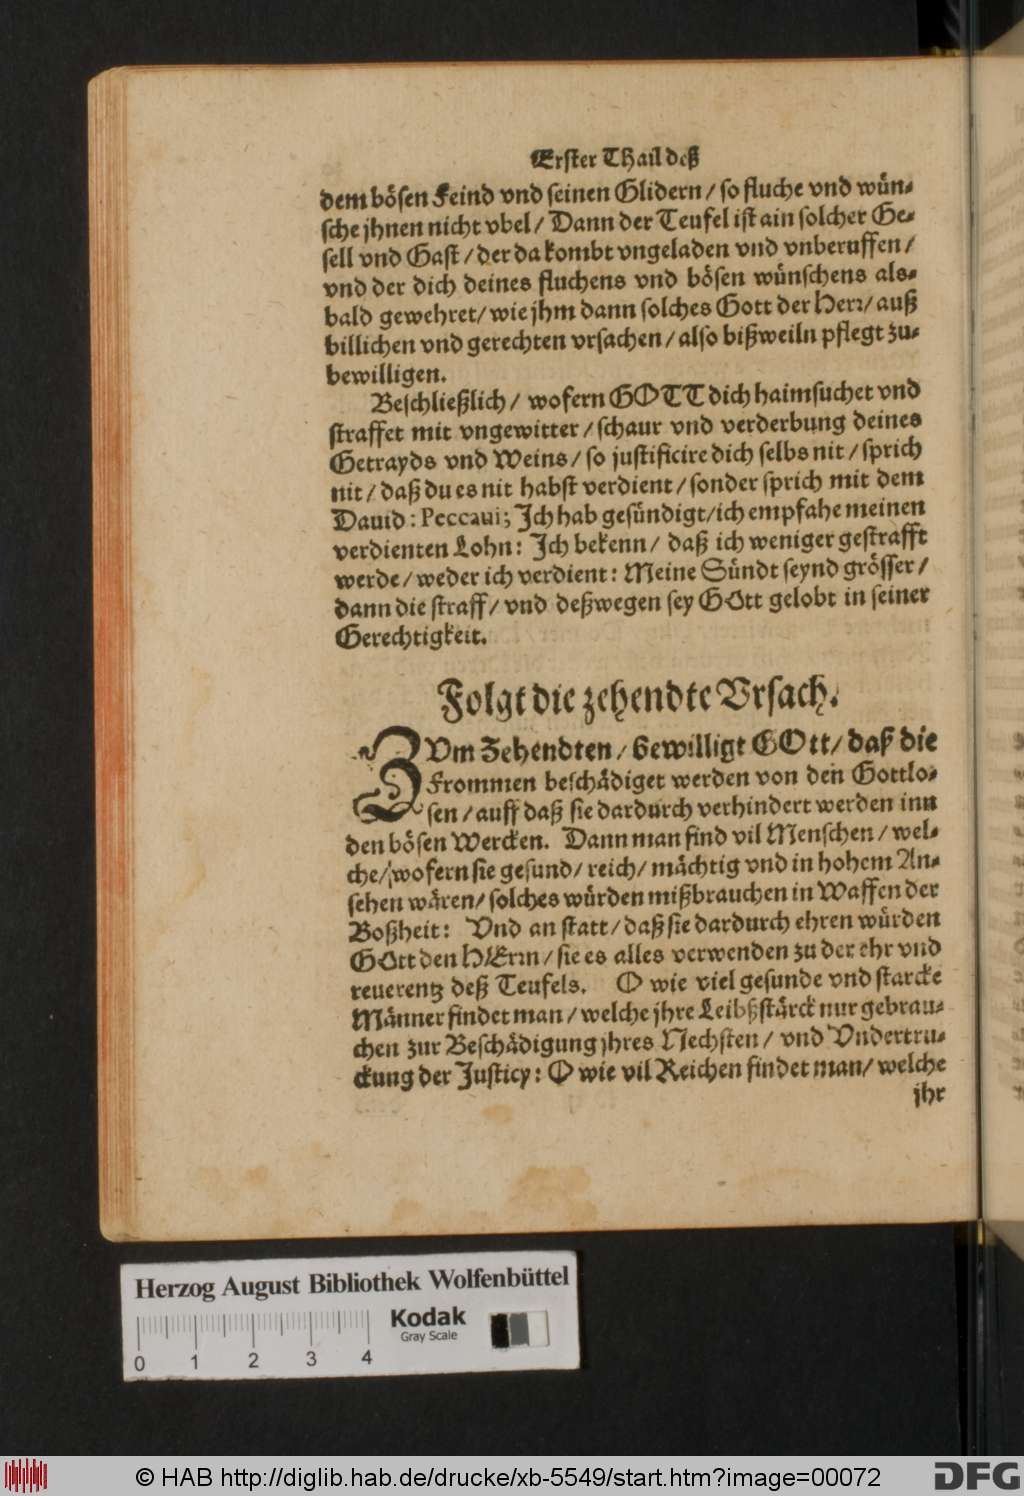 Erster Thail deß
dem bösen Feind vnd seinen Glidern / so fluche vnd wün-
sche jhnen nicht vbel / Dann der Teufel ist ain solcher Ge-
sell vnd Gast / der da kombt vngeladen vnd vnberuffen /
vnd der dich deines fluchens vnd bösen wünschens als-
bald gewehret / wie jhm dann solches Gott der Herr / auß
billichen vnd gerechten vrsachen / also bißweiln pflegt zu-
bewilligen.
Beschließlich / wofern GOTT dich haimsuchet vnd
straffet mit vngewitter / schaur vnd verderbung deines
Getrayds vnd Weins / so justificire dich selbs nit / sprich
nit / daß du es nit habst verdient / sonder sprich mit dem
Dauid : Peccaui; Ich hab gesündigt / ich empfahe meinen
verdienten Lohn : Ich bekenn / daß ich weniger gestrafft
werde / weder ich verdient : Meine Sündt seynd grösser /
dann die straff / vnd deßwegen sey GOtt gelobt in seiner
Gerechtigkeit.
Folgt die zehendte Vrsach.
ZVm Zehendten / bewilligt GOtt / daß die
Frommen beschädiget werden von den Gottlo-
sen / auff daß sie dardurch verhindert werden inn
den bösen Wercken. Dann man find vil Menschen / wel-
che / wofern sie gesund / reich / mächtig vnd in hohem An-
sehen wären / solches würden mißbrauchen in Waffen der
Boßheit : Vnd an statt / daß sie dardurch ehren würden
GOtt den HErrn / sie es alles verwenden zu der ehr vnd
reuerentz deß Teufels. O wie viel gesunde vnd starcke
Männer findet man / welche jhre Leibßstärck nur gebrau-
chen zur Beschädigung jhres Nechsten / vnd Vndertru-
ckung der Justicy : O wie vil Reichen findet man / welche
jhr
Herzog August Bibliothek Wolfenbüttel
Kodak
Gray Scale
0 1 2 3 4
© HAB http://diglib.hab.de/drucke/xb-5549/start.htm?image=00072
DFG